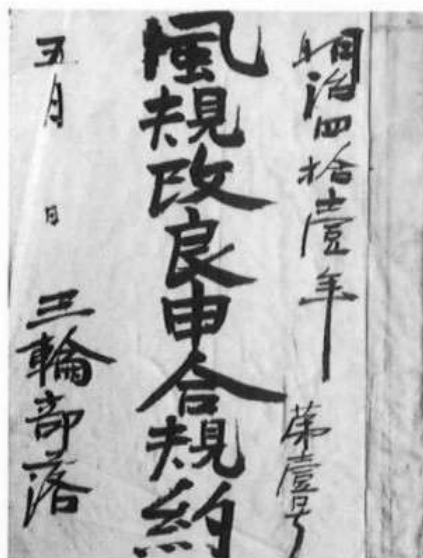 明治四拾壹年 第壹号
風規改良申合規約
五月 日 三輪部落